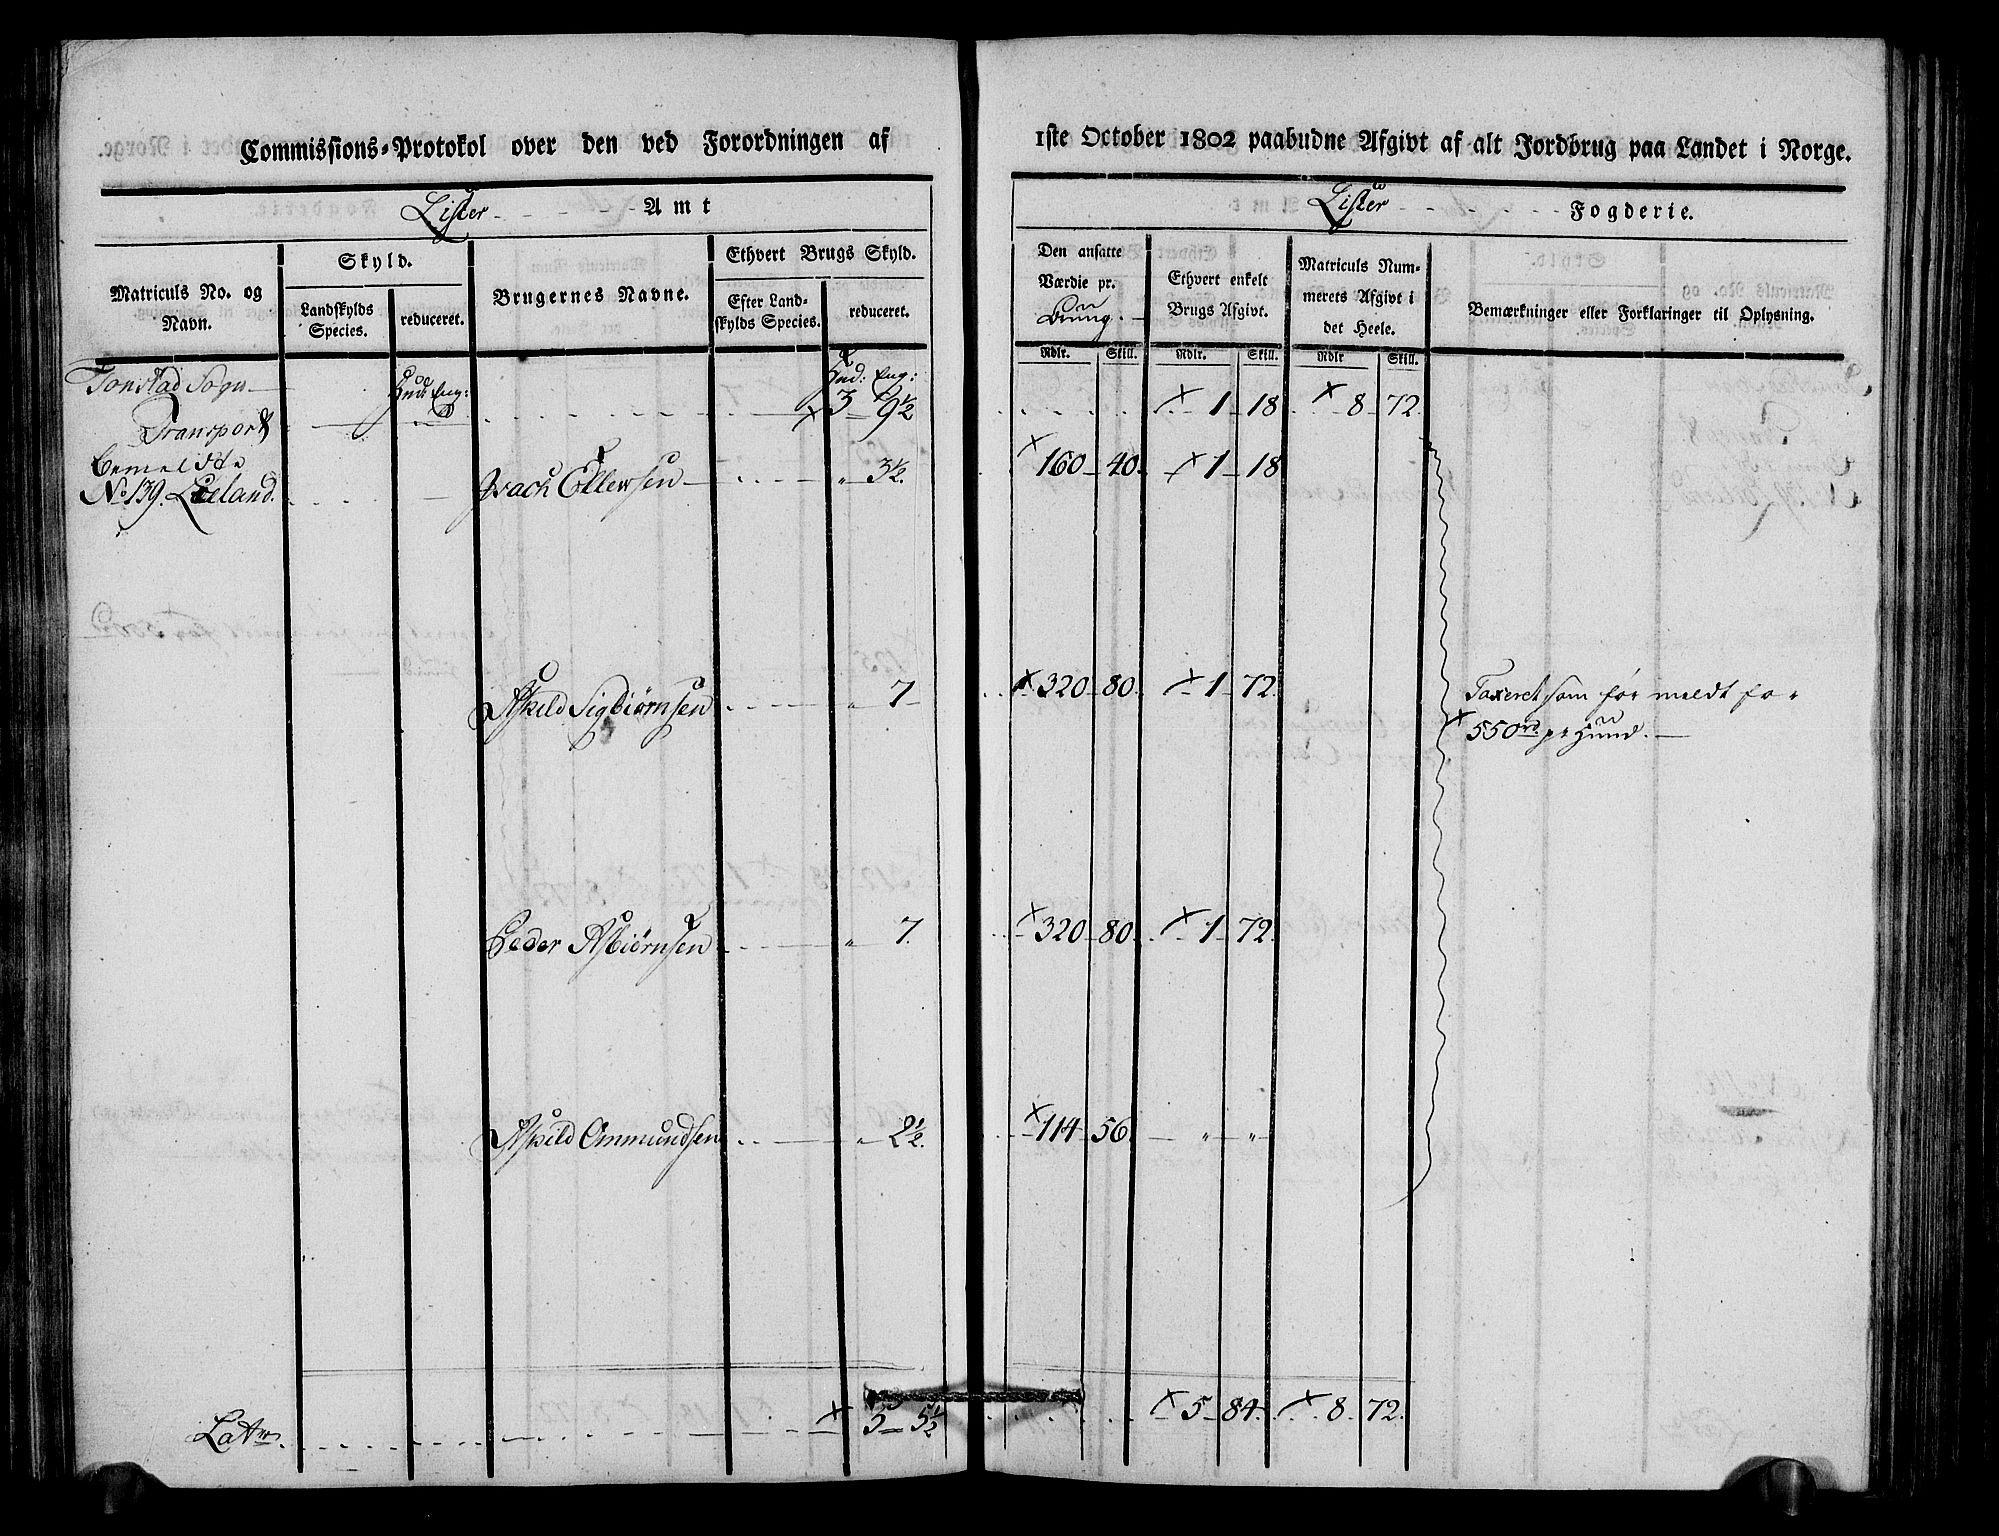 Commissions-Protokol over den ved Forordningen af
1ste October 1802 paabudne Afgivt af alt Jordbrug paa Landet i Norge.
Lister Amt
Lister Fogderie.
Matriculs No. og Navn.
Skyld.
Landskylds Species.
reduceret.
Brugernes Navne.
Ethvert Brugs Skyld.
Efter Landskylds Species.
reduceret.
Den ansatte Værdie pr.
Ethvert enkelt Brugs Afgivt.
Matriculs Nummerets Afgivt i det Heele.
Bemærkninger eller Forklaringer til Oplysning.
Rdlr. Skill. Rdlr. Skill. Rdlr Skill.
Tonstad Sogn Hud: Eng: Hud: Eng:
Transport 3 9½ 1 18 8 72
bemeldte
No 139. Lieland. Isach Ellevsen " 3½. 160 40. 1 18
Askild Sigbiørnsen " 7 320 80. 1 72. Taxeret som før meldt for
550 rd. pr Huud.
Peder Asbiørnsen " 7. 320 80. 1 72.
Askild Ommundsen " 2½. 114 56. " "
Latus 5 5½ 5 84. 8 72.